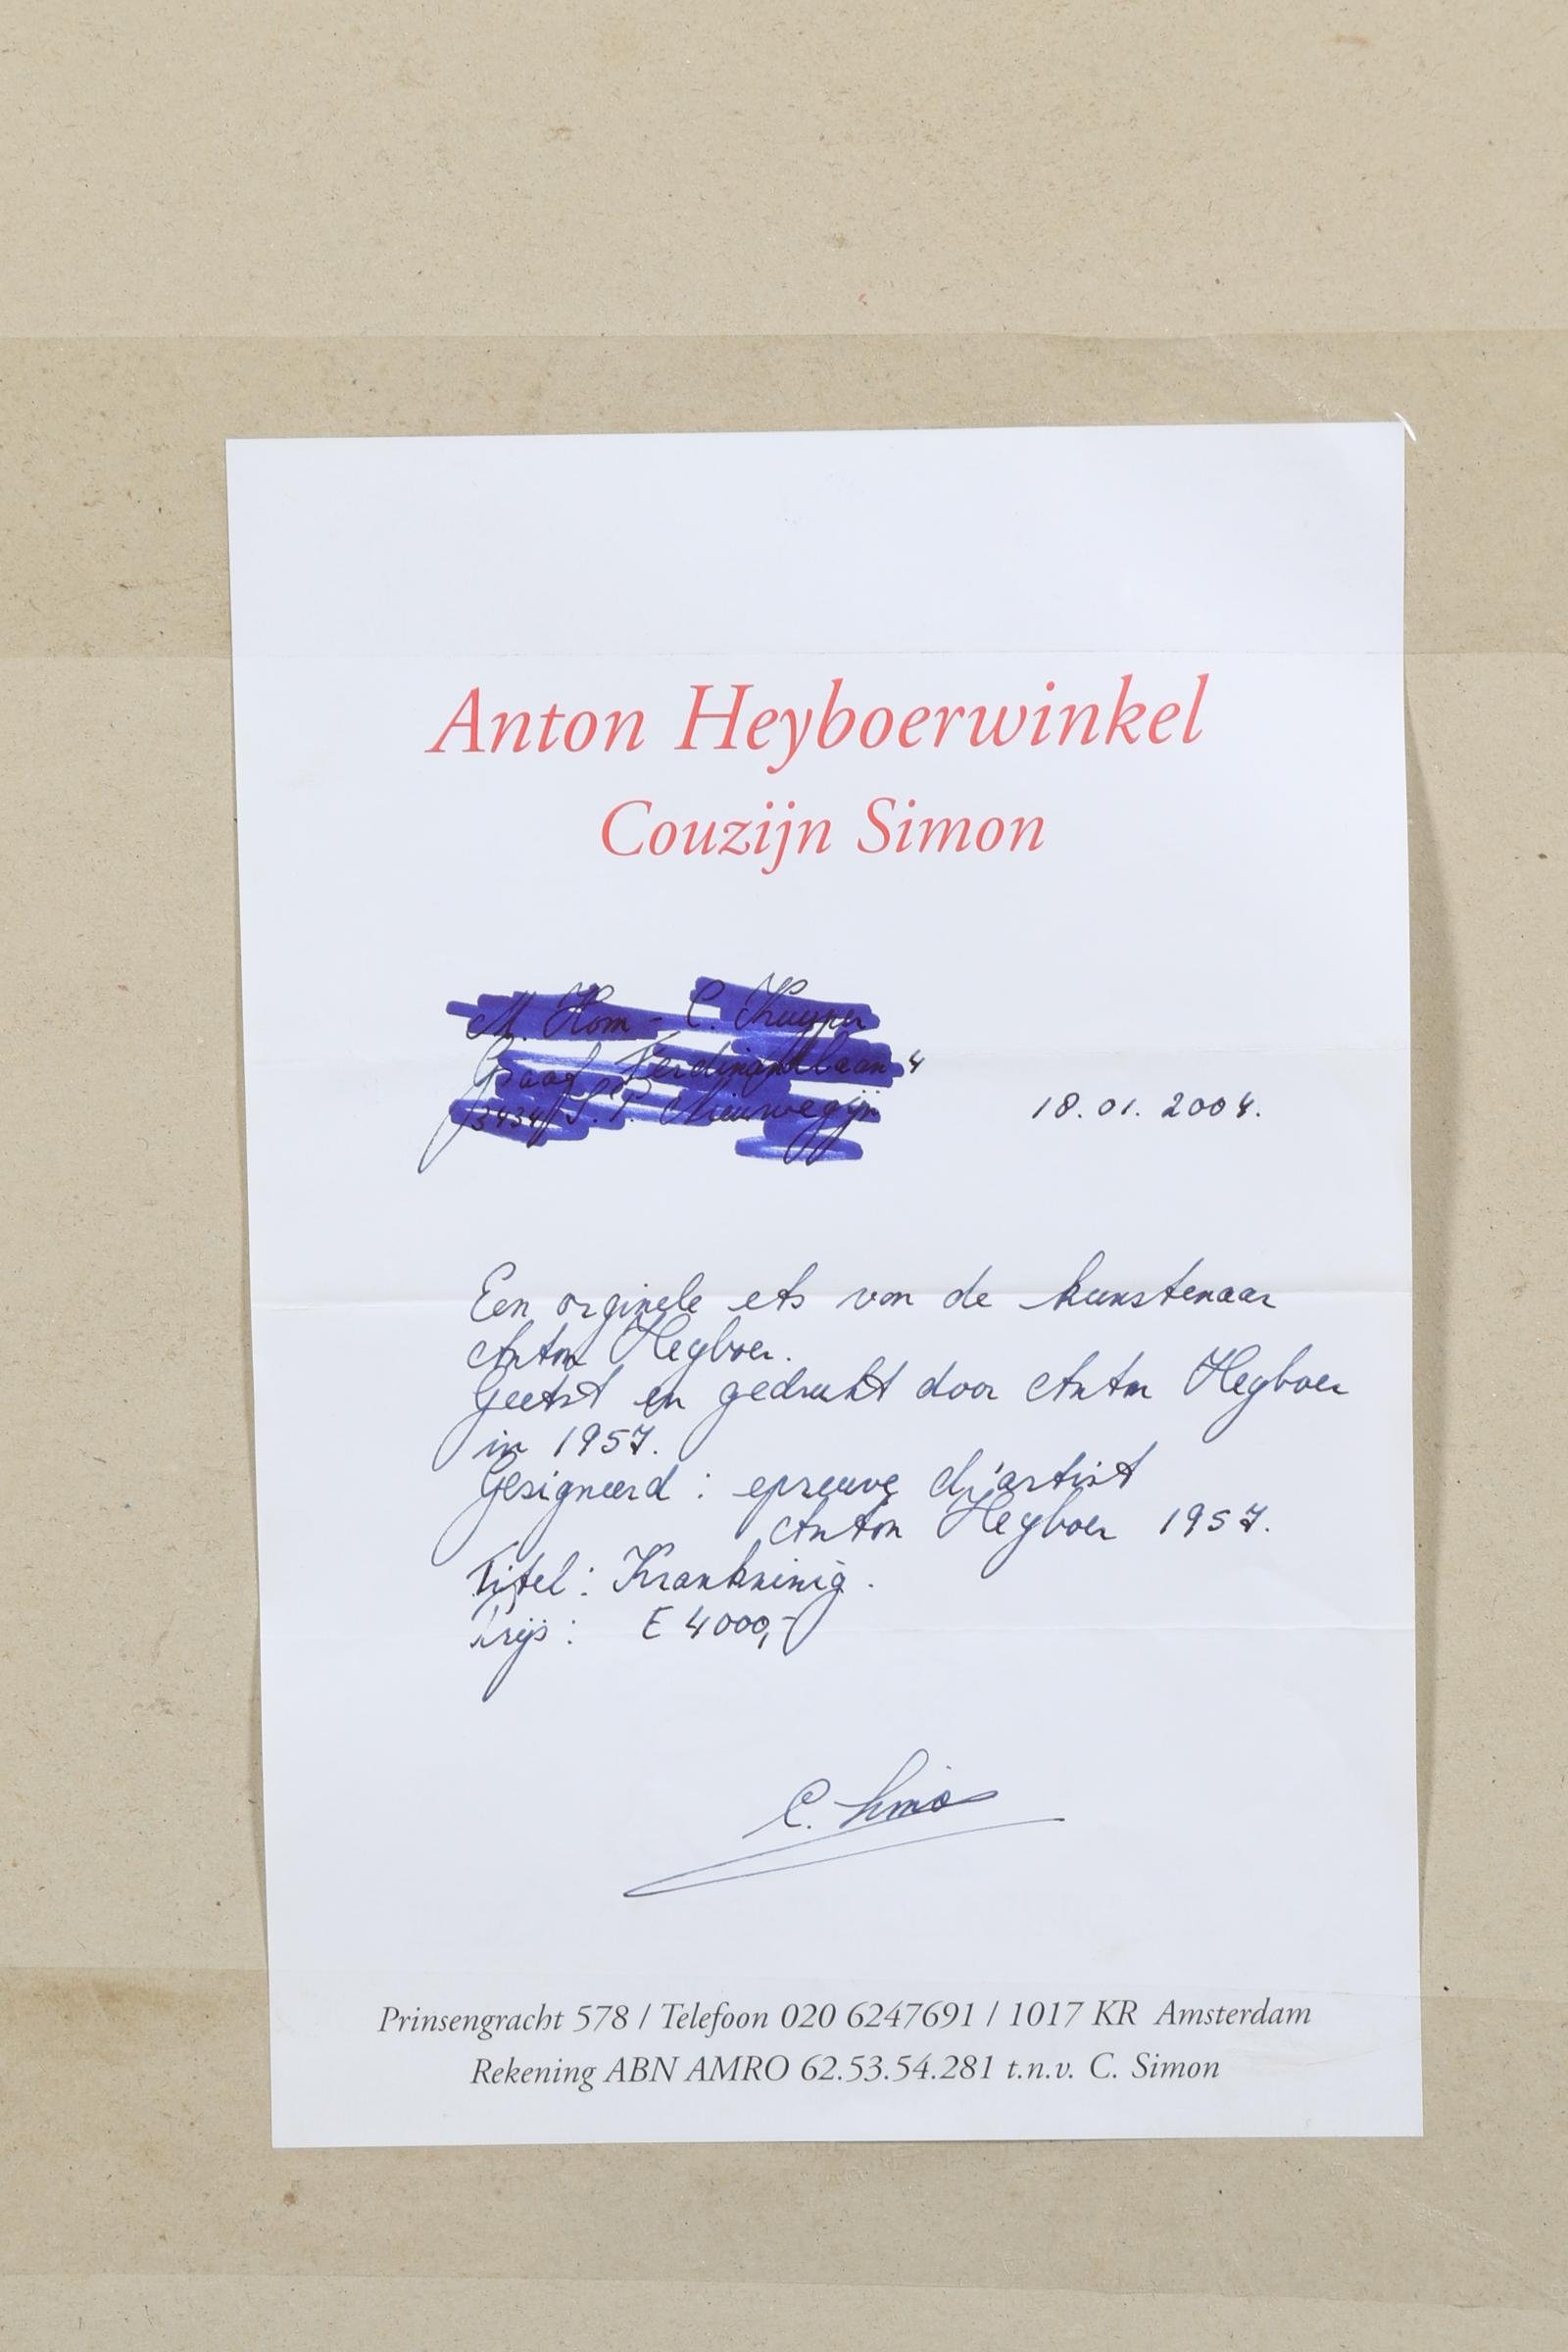 Anton Heyboerwinkel
Couzijn Simon
18.01.2004.
Een orginele ets van de kunstenaar
Anton Heyboer.
Geetst en gedrukt door Anton Heyboer
in 1957.
Gesigneerd: epreuve d'artist
Anton Heyboer 1957.
Titel:
Prijs: E 4000,-
C. Simon
Prinsengracht 578 / Telefoon 020 6247691 / 1017 KR Amsterdam
Rekening ABN AMRO 62.53.54.281 t.n.v. C. Simon